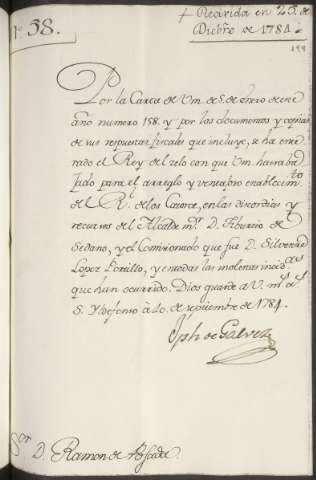 + Recivida en 25. de
Dicbre. de 1784.
N° 58.
199
Por la Carta de Vm. de 5. de enero de este
año numero 158. y por los documentos y copias
de sus respuestas fiscales que incluye, se ha ente-
rado el Rey del zelo con que Vm. ha traba
jado para el arreglo y ventajoso establecim.to
del R. de los Catorce, en las discordias y
recursos del Alcalde mr. D. Tiburcio de
Sedano, y el Comisionado que fue D. Silvestre
Lopez Portillo, y en todas las molestas incid.as
que han ocurrido. Dios guarde a V. ms. as.
S. Yldefonso à 20. de septiembre de 1784.
Jph. de Galvez
Sor. D. Ramon de Posada.